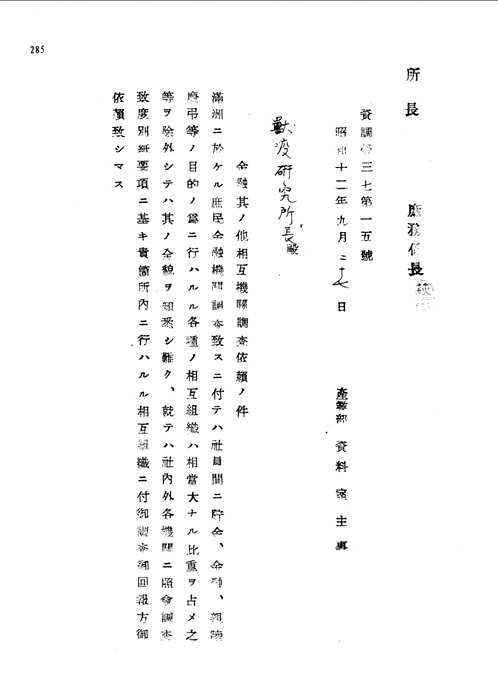 285
所長
庶務係長
資調 三七第一五號
昭和十二年九月二十七日
產業部 資料室主事
獸疫研究所長殿
金融其ノ他相互機關調査依賴ノ件
滿洲ニ於ケル庶民金融機關調査致スニ付テハ社員間ニ貯金、金融、親睦
慶弔等ノ目的ノ爲ニ行ハルル各種ノ相互組織ハ相當大ナル比重ヲ占メ之
等ヲ除外シテハ其ノ全貌ヲ知悉シ難ク、就テハ社內外各機關ニ照會調査
致度別紙要項ニ基キ貴箇所內ニ行ハルル相互組織ニ付御調査御回報方御
依賴致シマス